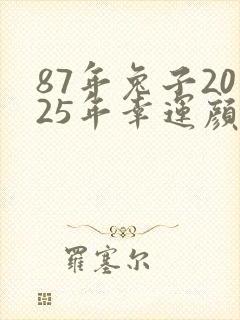 87年兔子20
25年幸運顔
羅塞尔